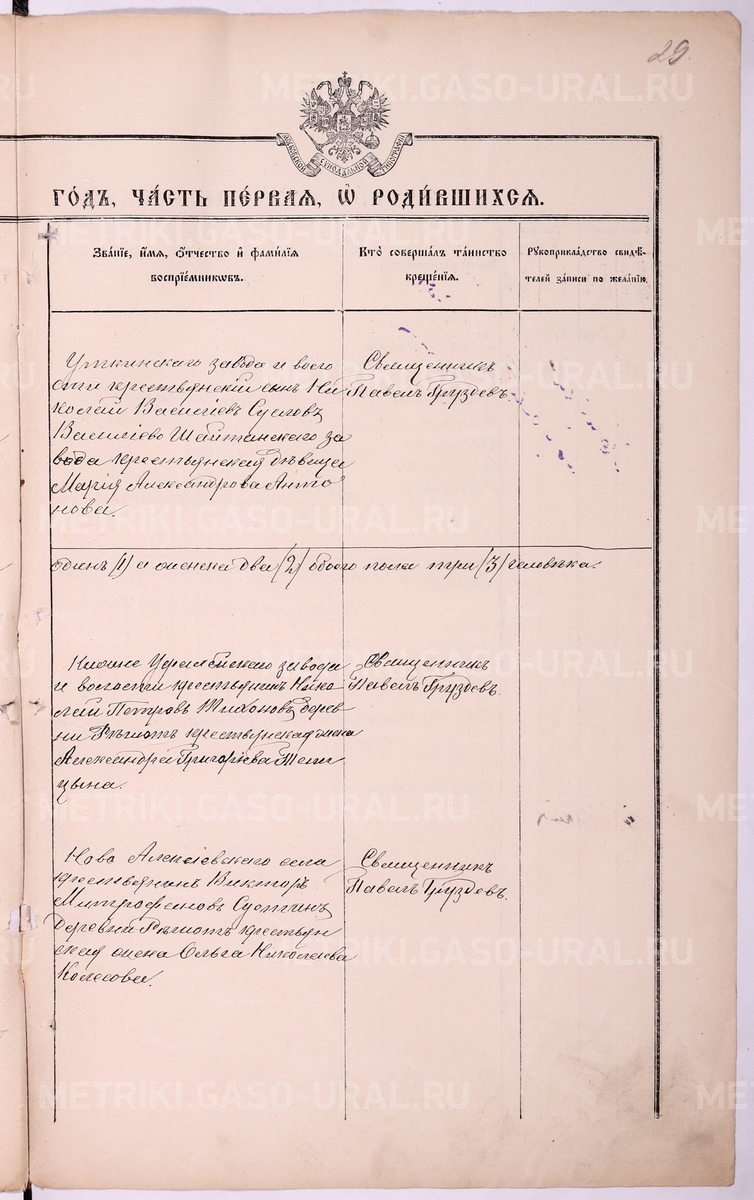 29.
МОСКОВСКОЙ СѴНОДАЛЬНОЙ ТИПОГРАФІИ
ГО́ДЪ, ЧА́СТЬ ПЕ́РВАЯ, Ѡ҆ РОДИ́ВШИХСЯ.
Зва́нїе, и҆́мѧ, ѻ҆́тчество и҆ фами́лїѧ
воспрїе́мникѡвъ.
Кто̀ соверша́лъ та́инство
креще́нїѧ.
Рꙋкоприкла́дство свидѣ́-
телей за́писи по жела́нїю.
Уткинскаго завода и воло
сти крестьянскій сынъ Ни
колай Василіевъ Сусловъ
Василіево Шайтанскаго за
вода крестьянская дѣвица
Марія Александрова Анто
нова.
Священникъ
Павелъ Груздевъ.
одинъ (1) а женска два (2) обоего пола три (3) человѣка.
Нижне Уфалейскаго завода
и волости крестьянинъ Нико
лай Петровъ Тихоновъ, дерев
ни крестьянская жена
Александра Григорьева
цына.
Священникъ
Павелъ Груздевъ.
Ново Алексіевскаго села
крестьянинъ Викторъ
Митрофановъ
деревни крестьян
ская жена Ольга Николаева
Колесова.
Священникъ
Павелъ Груздевъ.
METRIKI.GASO-URAL.RU